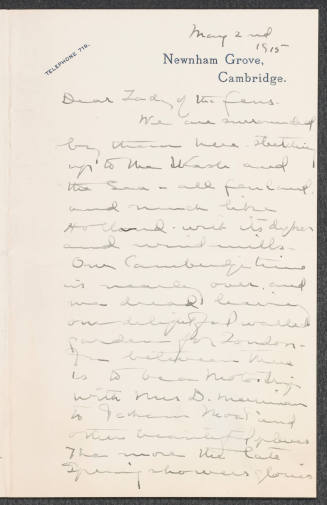 May 2nd
1915
TELEPHONE 719.
Newnham Grove,
Cambridge.
Dear Lady of the Fens.
We are surrounded
by them here stretching
up to the Wash and
the Sea - all fenland
and much like
Holland - with its dykes
and windmills -
Our Cambridge time
is nearly over, and
we dread leaving
our delightful walled
garden for London -
In between there
is to be a Motortrip
with Mrs D. Merriman
to Ightham Mote and
other beautiful places
The more the late
Spring showers glories